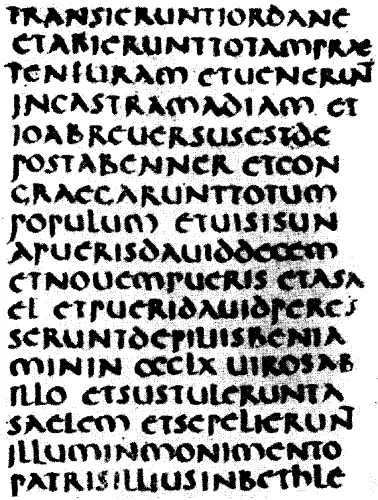 TRANSIERUNTIORDANE
ETABIERUNTTOTAMPRAE
TENTURAM ETUENERUN̄
INCASTRAMADIAM ET
IOABREUERSUSESTDE
POSTABENNER ETCON
GRAECCARUNTTOTUM
POPULUM ETUISISUN
APUERISDAUIDDECEM
ETNOUEMPUERIS ETASA
EL ETPUERIDAUIDPERCS
SERUNTDEFILIISBENIA
MININ CCCLX UIROSAB
ILLO ETSUSTULERUNTA
SAELEM ETSEPELIERUN̄
ILLUMINMONIMENTO
PATRISILLIUSINBETHLE